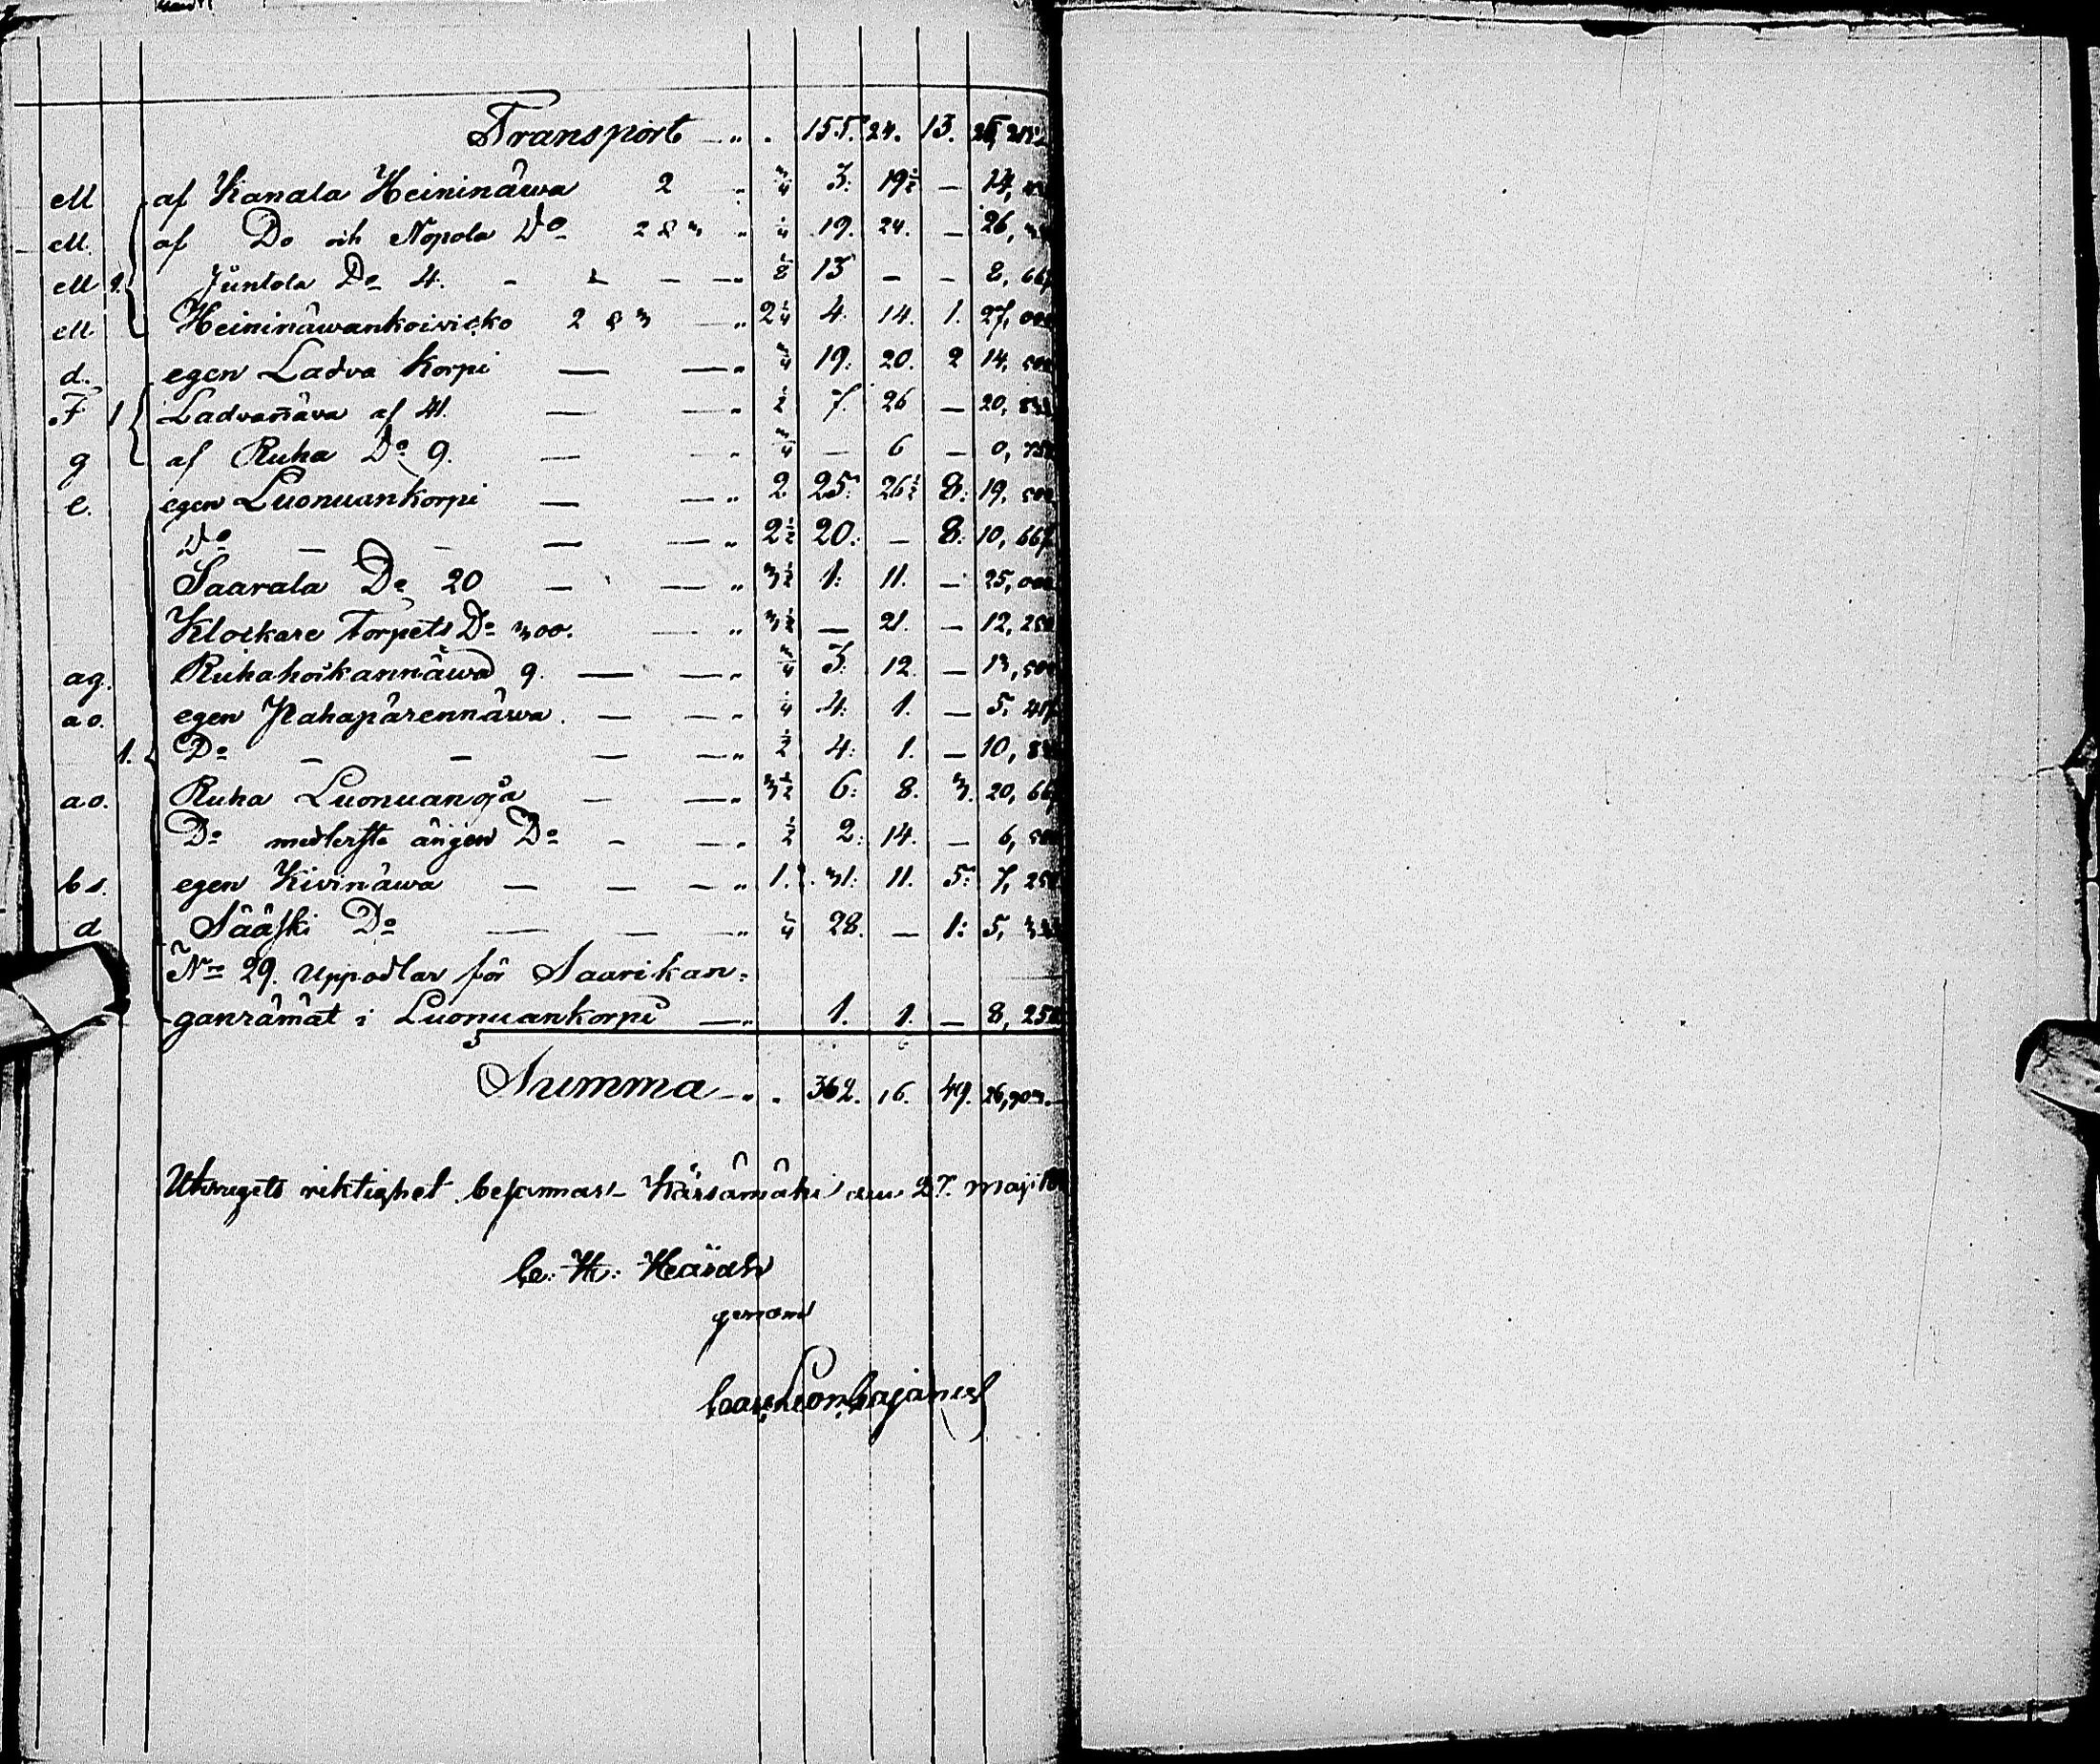 Transport — " . 155. 24. 13.
M af Kanala Heininäwa 2 " ¾ 3: 19½ — 14,
M. af Do och Nopola Do 2 & 3 " ¼ 19. 24. — 26,
M 2. Juntola Do 4. - - - — " 13 — — 8, 667
M Heininäwankoivicko 2 & 3 — " 2¼ 4. 14. 1. 27, 000
d. egen Ladva Korpi — — " ¾ 19: 20. 2 14, 500
F 1 Ladvanäva af 41. — — " ½ 7. 26 — 20, 833
g af Ruha Do 9. — — " ¾ — 6 — 0, 750
e. egen Luonuankorpi — — " 2 25: 26½ 8: 19, 500
Do — - — — " 2½ 20: — 8: 10, 667
Saarala Do 20 — — " 3½ 1: 11. — 25, 000
Klockare Torpets Do 300. — " 3½ — 21. — 12, 250
ag. Ruhahoikannäwa 9. — — " ¾ 3: 12. — 13, 500
ao. egen Rahapärennäwa. — — " ¼ 4: 1. — 5, 417
1. Do — — — — " ½ 4: 1. — 10, 833
ao. Ruha Luonuanoja — — " 3½ 6: 8. 3. 20, 667
Do medlersta ängen Do - — " ½ 2: 14. — 6, 500
bs. egen Kivinäwa — — — " 1. 31: 11. 5: 7, 250
d Sääski Do — — — " ¼ 28. — 1: 5, 333
No 29. Uppodlar för Saarikan=
ganrämät i Luonuankorpi — " 1. 1. — 8, 250
Summa — " . 362. 16. 49. 26,903.
Utdragets riktighet Kärsämäki den 27. Maji
C. H.
genom
Cajanus